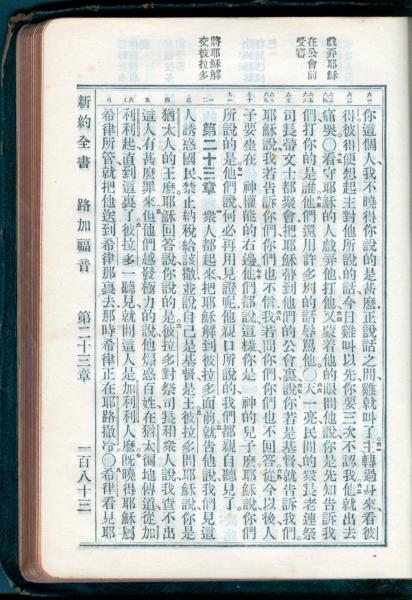 戲弄耶穌
在公會前
受審
將耶穌解
交彼拉多
你這個人我不曉得你說的是甚麼正說話之間雞就叫了主轉過身來看彼
得彼得便想起主對他所說的話今日雞叫以先你要三次不認我他就出去
痛哭〇看守耶穌的人戲弄他打他又蒙着他的眼問他說你是先知告訴我
們打你的是誰他們還用許多別的話辱罵他〇天一亮民間的衆長老連祭
司長帶文士都聚會把耶穌帶到他們的公會裏說你若是基督就告訴我們
耶穌說我若告訴你們你們也不信我若問你們你們也不回答從今以後人
子要坐在 神權能的右邊他們都說這樣你是 神的兒子麼耶穌說你們
所說的是他們說何必再用見證呢他親口所說的我們都親自聽見了
第二十三章 衆人都起來把耶穌解到彼拉多面前就告他說我們見這
人誘惑國民禁止納稅給該撒並說自己是基督是王彼拉多問耶穌說你是
猶太人的王麼耶穌回答說你說的是彼拉多對祭司長和衆人說我查不出
這人有甚麼罪來但他們越發極力的說他煽惑百姓在猶太徧地傳道從加
利利起直到這裏了彼拉多一聽見就問這人是加利利人麼旣曉得耶穌屬
希律所管就把他送到希律那裏去那時希律正在耶路撒冷〇希律看見耶
新約全書 路加福音 第二十三章 一百八十三